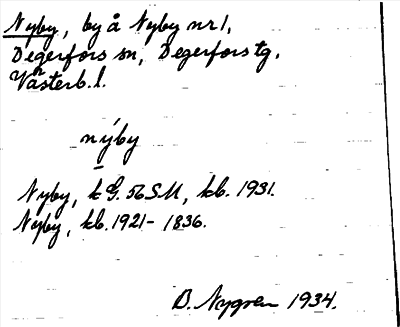 Nyby, by å Nyby nr 1,
Degerfors sn, Degerfors tg,
Västerb. l.
nýby
Nyby, k G. 56 S.U, kb. 1931.
Nyby, kb. 1921-1836.
B. Nygren 1934.